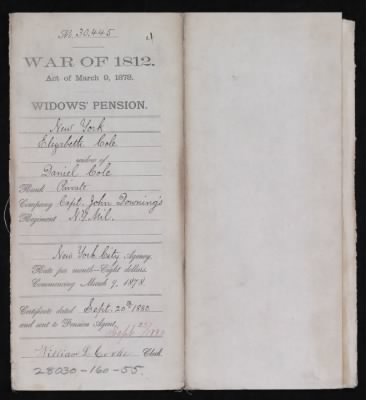 No. 30,445
WAR OF 1812.
Act of March 9, 1878.
WIDOWS' PENSION.
New York
Elizabeth Cole
widow of
Daniel Cole
Rank Private
Company Capt. John Downing's
Regiment N.Y. Mil.
New York City Agency.
Rate per month—Eight dollars.
Commencing March 9, 1878.
Certificate dated Sept. 20th 1880
and sent to Pension Agent,
Sept
William D. Clerk.
28030-160-55.